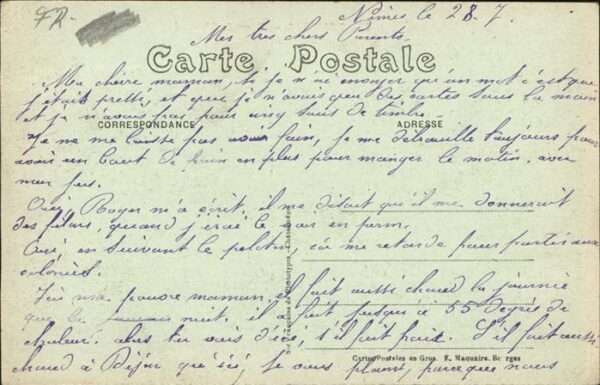 Nîmes le 28.7
Mes tres chers Parents
Carte Postale
Ma chère maman, si je n'ai envoyer qu'un mot c'est que
j'était pressé, et que je n'avais que des cartes sous la main
et je n'avais pas pour cinq sous de timbre
CORRESPONDANCE ADRESSE
Je ne me laisse pas avoir faim, je me débrouille toujours pour
avoir un bout de pain en plus pour manger le matin, avec
mon jus.
Oui, Roger m'a écrit, il me disait qu'il me donnerait
des filons, quand j'irai le voir en perm.
Oui en suivant le peloton, ça me retarde pour partir aux
colonies.
ma pauvre maman, il fait aussi chaud la journée
que la nuit. il a fait jusqu'à 55 degrés de
chaleur. alors tu vois d'ici, s'il fait bon. S'il fait aussi
Cartes Postales en Gros. F. Maquaire. Bourges
chaud à qu'ici, je vous plains, parce que nous